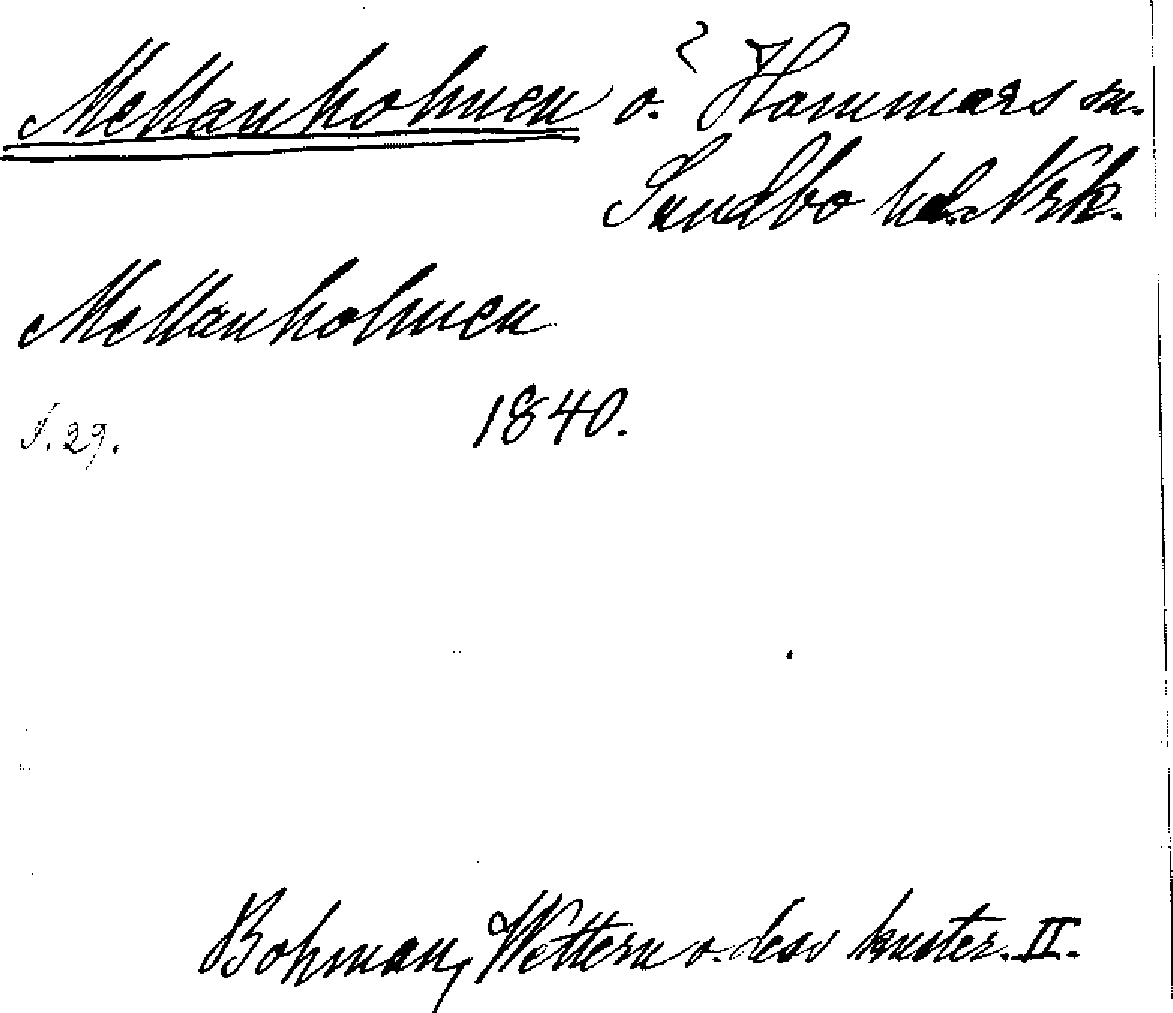 Mellanholmen ö. ? Hammars sn.
Sundbo hd. Nrk.
Mellanholmen
1840.
S. 29.
Bohman, Wettern o. dess kuster. II.